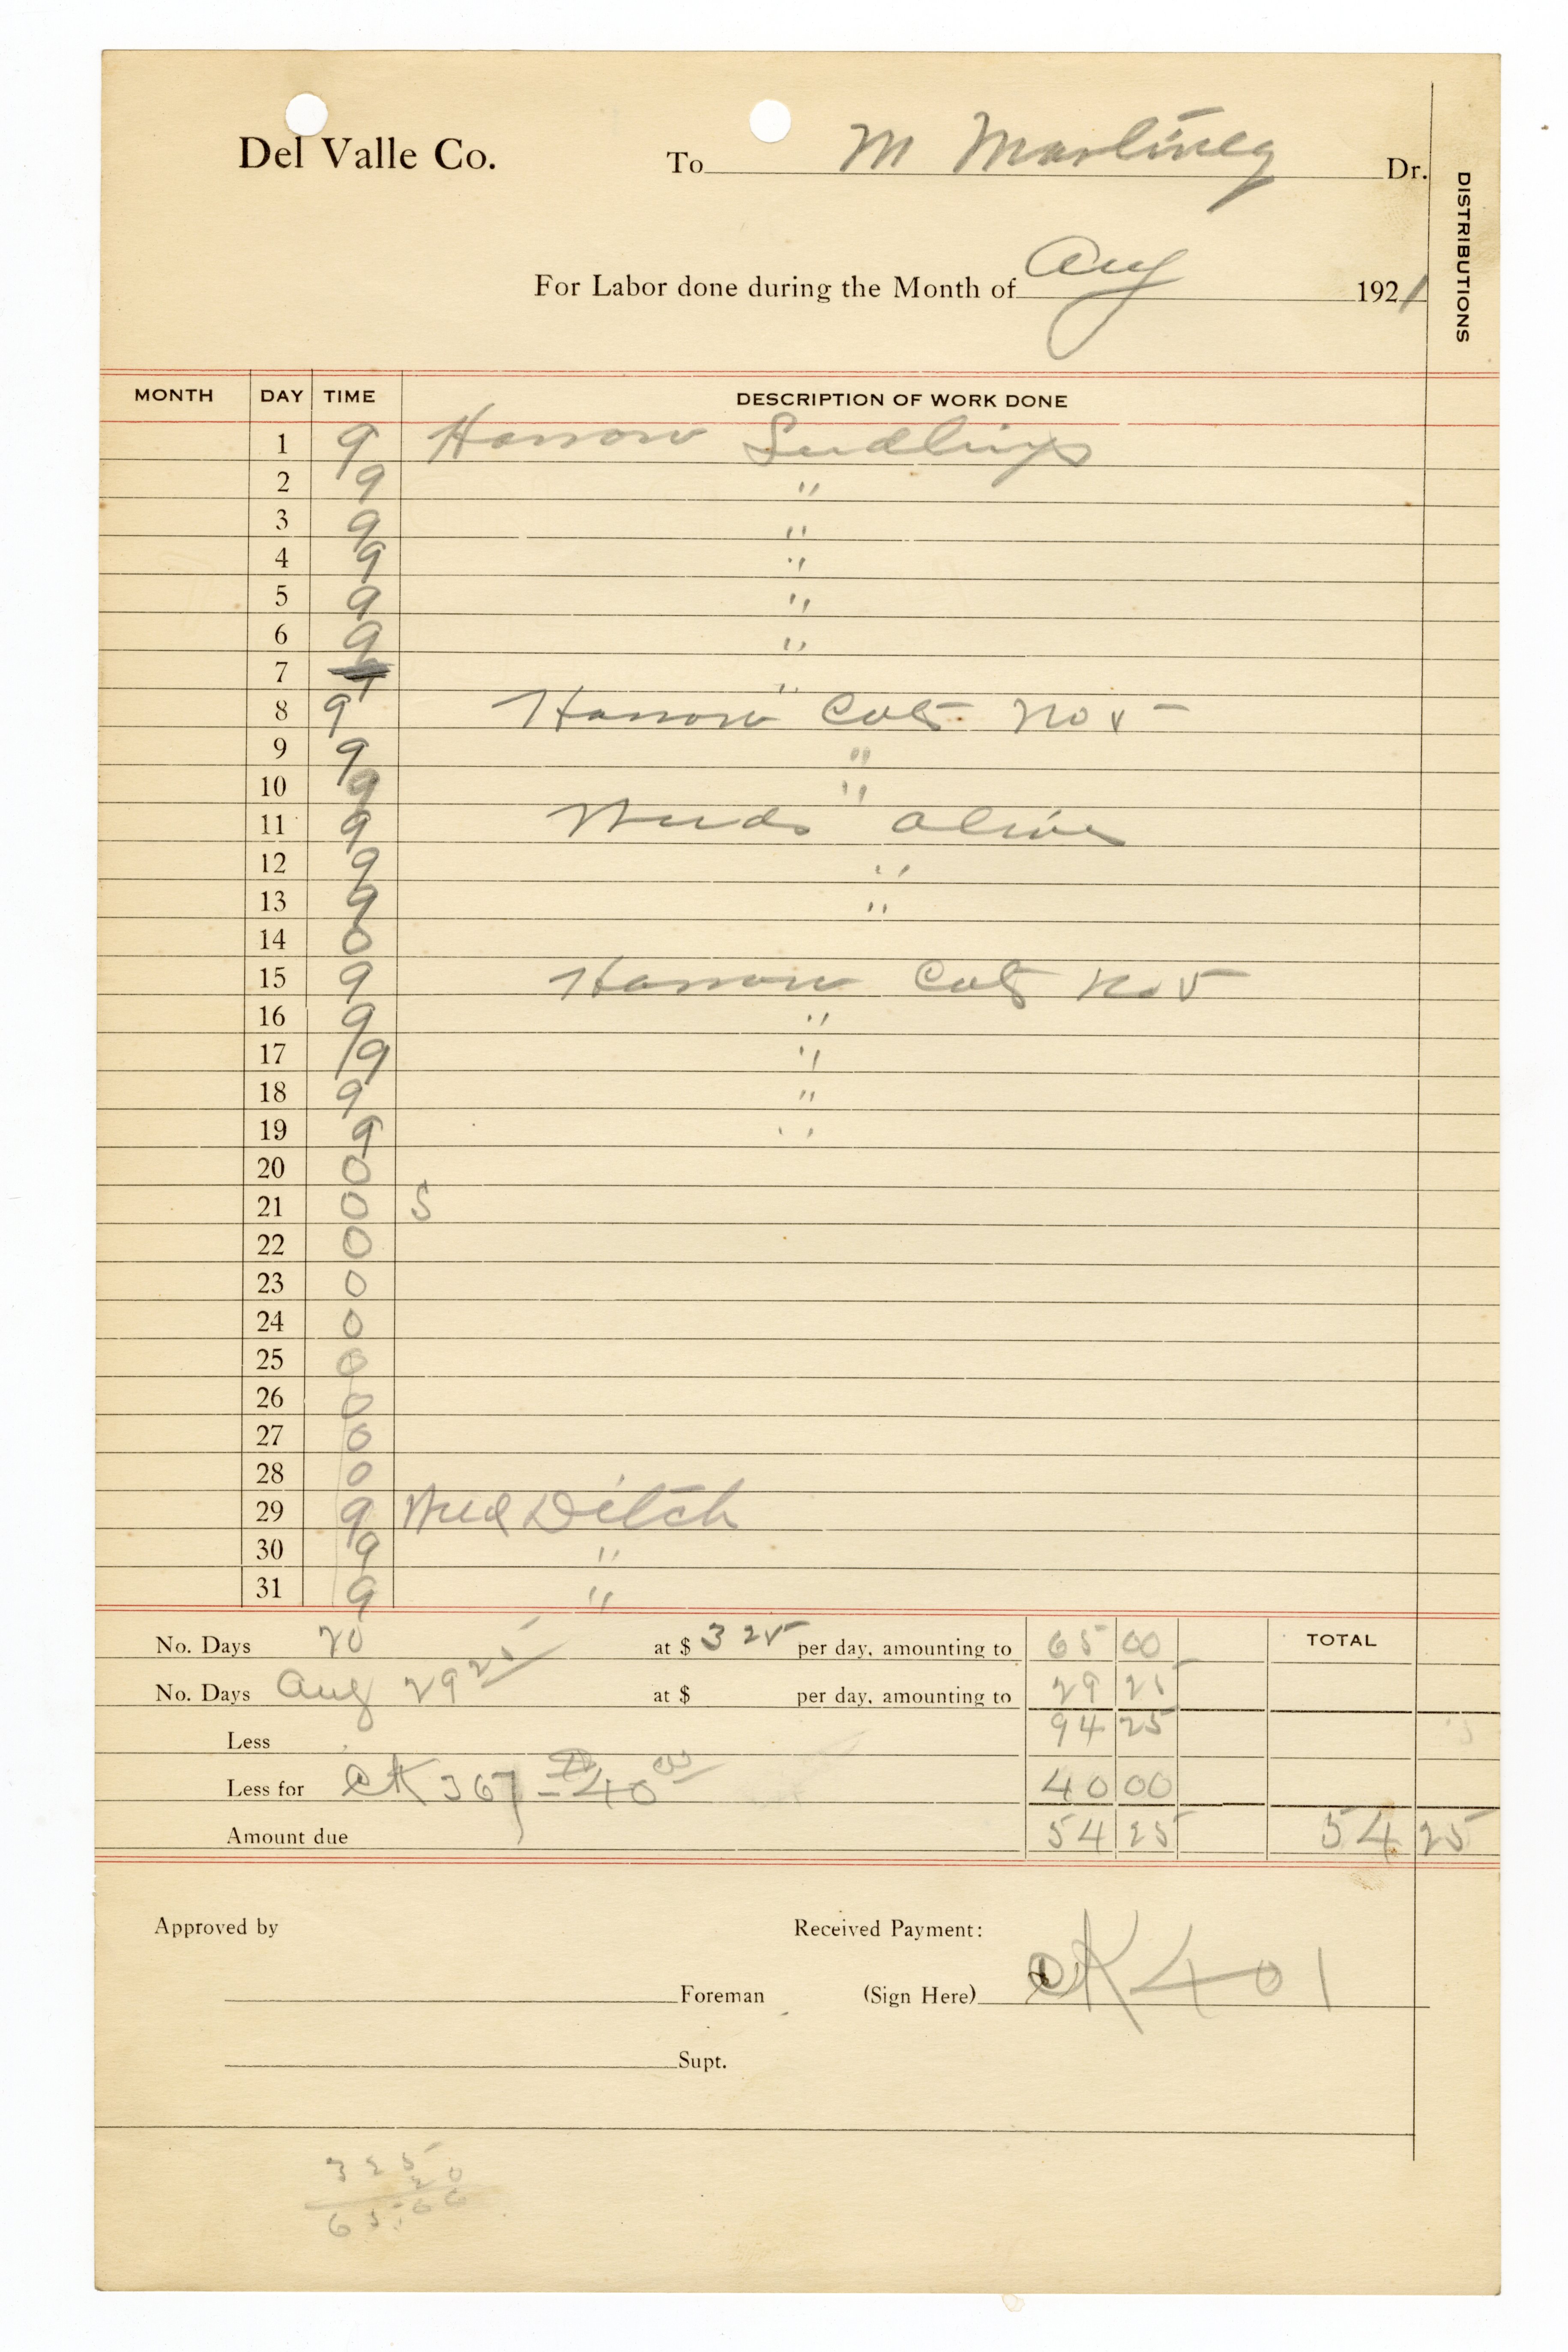 Del Valle Co. To M Martinez Dr.
DISTRIBUTIONS
For Labor done during the Month of Aug 1921
MONTH DAY TIME DESCRIPTION OF WORK DONE
1 9 Harrow Seedlings
2 9 "
3 9 "
4 9 "
5 9 "
6 9 "
7 "
8 9 Harrow Cots No 5
9 9 "
10 9 "
11 9 Weeds Olives
12 9 "
13 9 "
14 0
15 9 Harrow Cots No 5
16 9 "
17 9 "
18 9 "
19 9 "
20 0
21 0 S
22 0
23 0
24 0
25 0
26 0
27 0
28 0
29 9 Weed Ditch
30 9 "
31 9 "
No. Days 20 at $ 3 25 per day, amounting to 65 00 TOTAL
No. Days Aug 29 25 at $ per day, amounting to 29 25
Less 94 25
Less for CK 367 - 40 00 40 00
Amount due 54 25 54 25
Approved by Received Payment:
Foreman (Sign Here) CK 401
Supt.
3 25
20
65.00